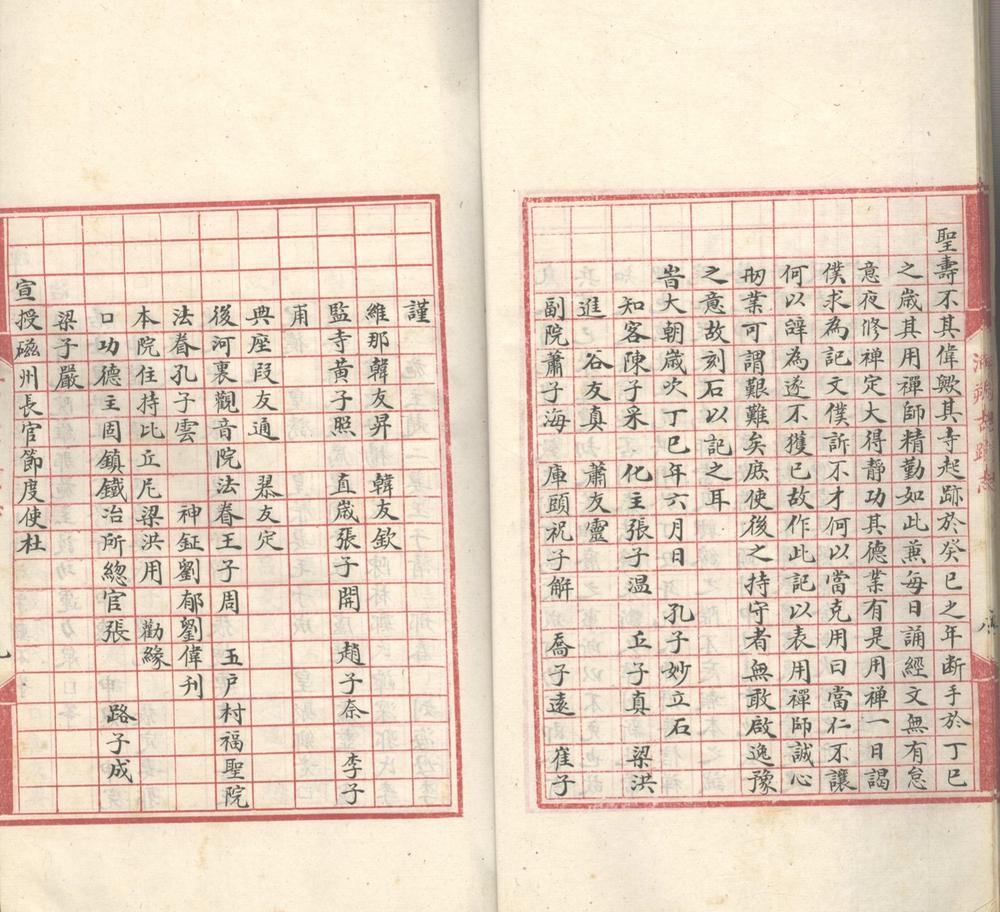 聖壽不其偉歟其寺起跡於癸巳之年断手於丁巳
之歲其用禪師精勤如此兼每日誦經文無有怠
意夜修禪定大得静功其德業有是用禅一日謁
僕求為記文僕訴不才何以當克用曰當仁不讓
何以辭為遂不獲已故作此記以表用禪師誠心
剏業可謂艱難矣庶使後之持守者無敢啟逸豫
之意故刻石以記之耳
旹大朝歲次丁巳年六月日 孔子妙立石
知客陳子采 化主張子温 丘子真 梁洪
進 谷友真 蕭友靈
副院蕭子海 庫頭祝子解 喬子遠 崔子
謹
維那韓友昇 韓友欽
監寺黃子照 直歲張子開 趙子奈 李子
甫
典座段友通 㬥友定
後河裏觀音院法眷王子周 玉户村福聖院
法眷孔子雲 神鉦劉郁劉偉刋
本院住持比丘尼梁洪用 勸緣
口功德主固鎮鐵冶所總官張 路子成
梁子嚴
宣授磁州長官節度使杜